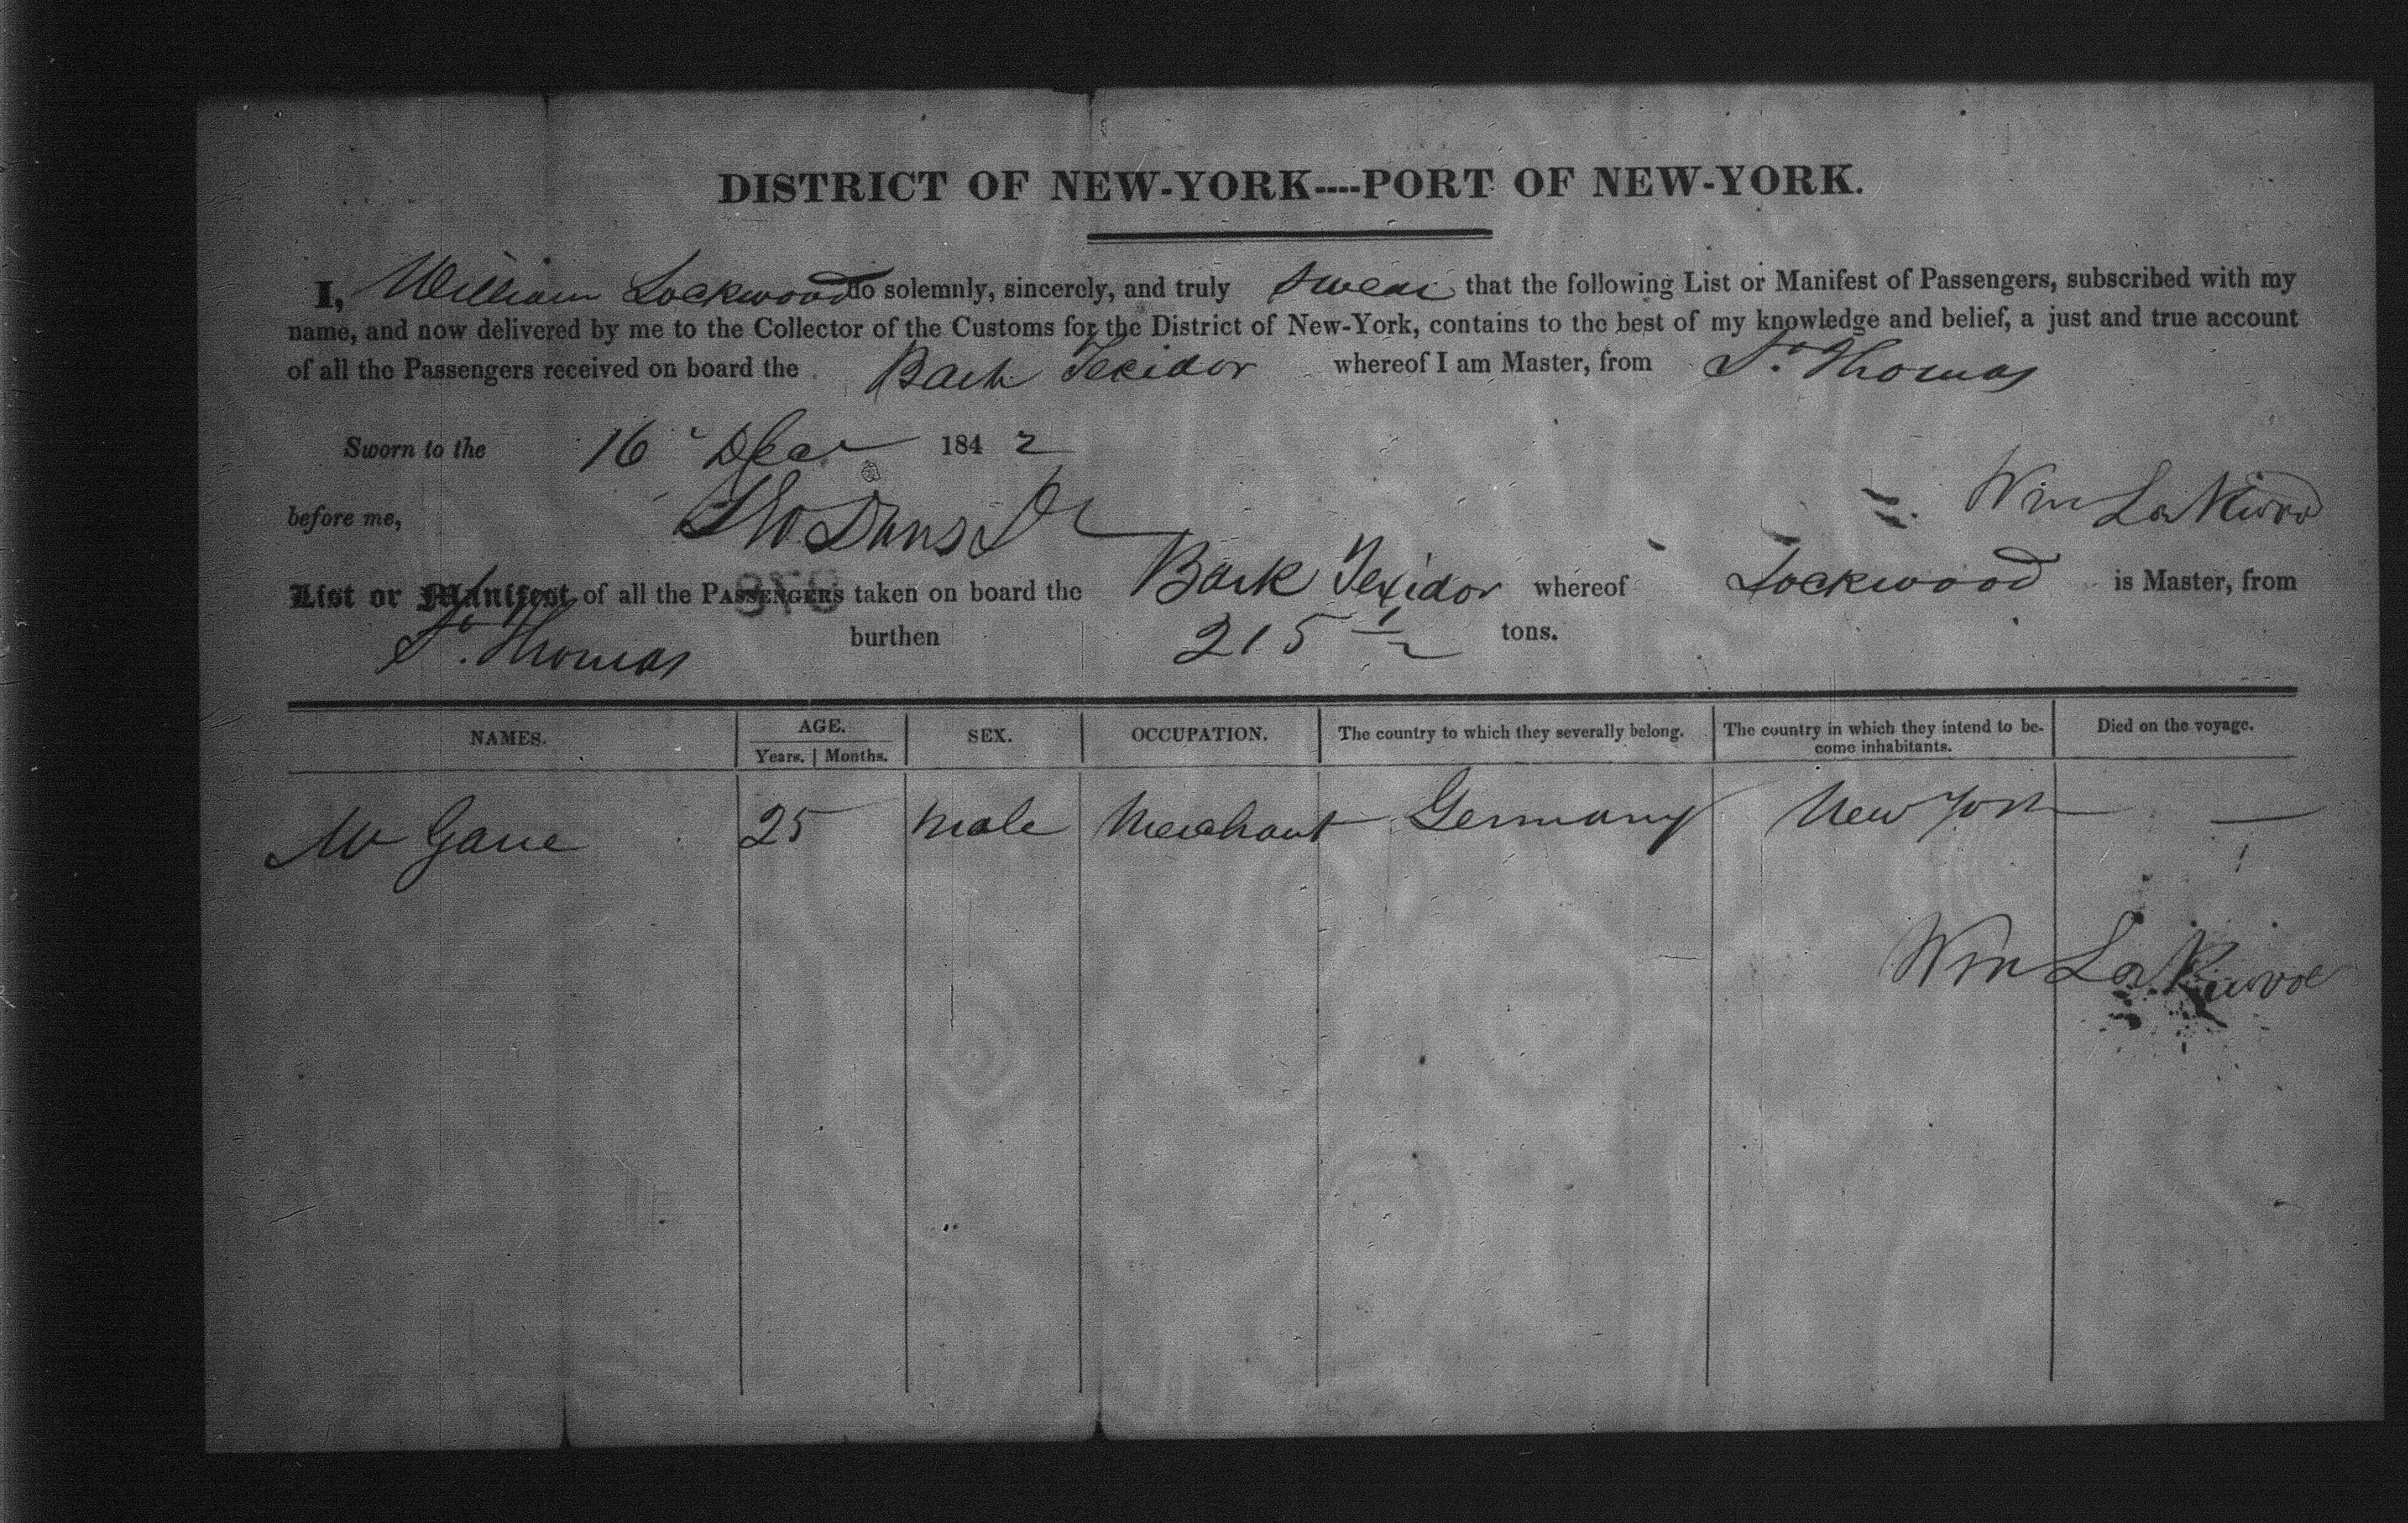 DISTRICT OF NEW-YORK----PORT OF NEW-YORK.
I, William Lockwood do solemnly, sincerely, and truly swear that the following List or Manifest of Passengers, subscribed with my
name, and now delivered by me to the Collector of the Customs for the District of New-York, contains to the best of my knowledge and belief, a just and true account
of all the Passengers received on board the Bark Texidor whereof I am Master, from St. Thomas
Sworn to the 16 Decr 1842
before me,
Wm Lockwood
List or Manifest of all the PASSENGERS taken on board the Bark Texidor whereof Lockwood is Master, from
St. Thomas burthen 215 1/2 tons.
NAMES. AGE. SEX. OCCUPATION. The country to which they severally belong. The country in which they intend to be- Died on the voyage.
Years. Months. come inhabitants.
Mr 25 male Merchant Germany New York —
Wm Lockwood